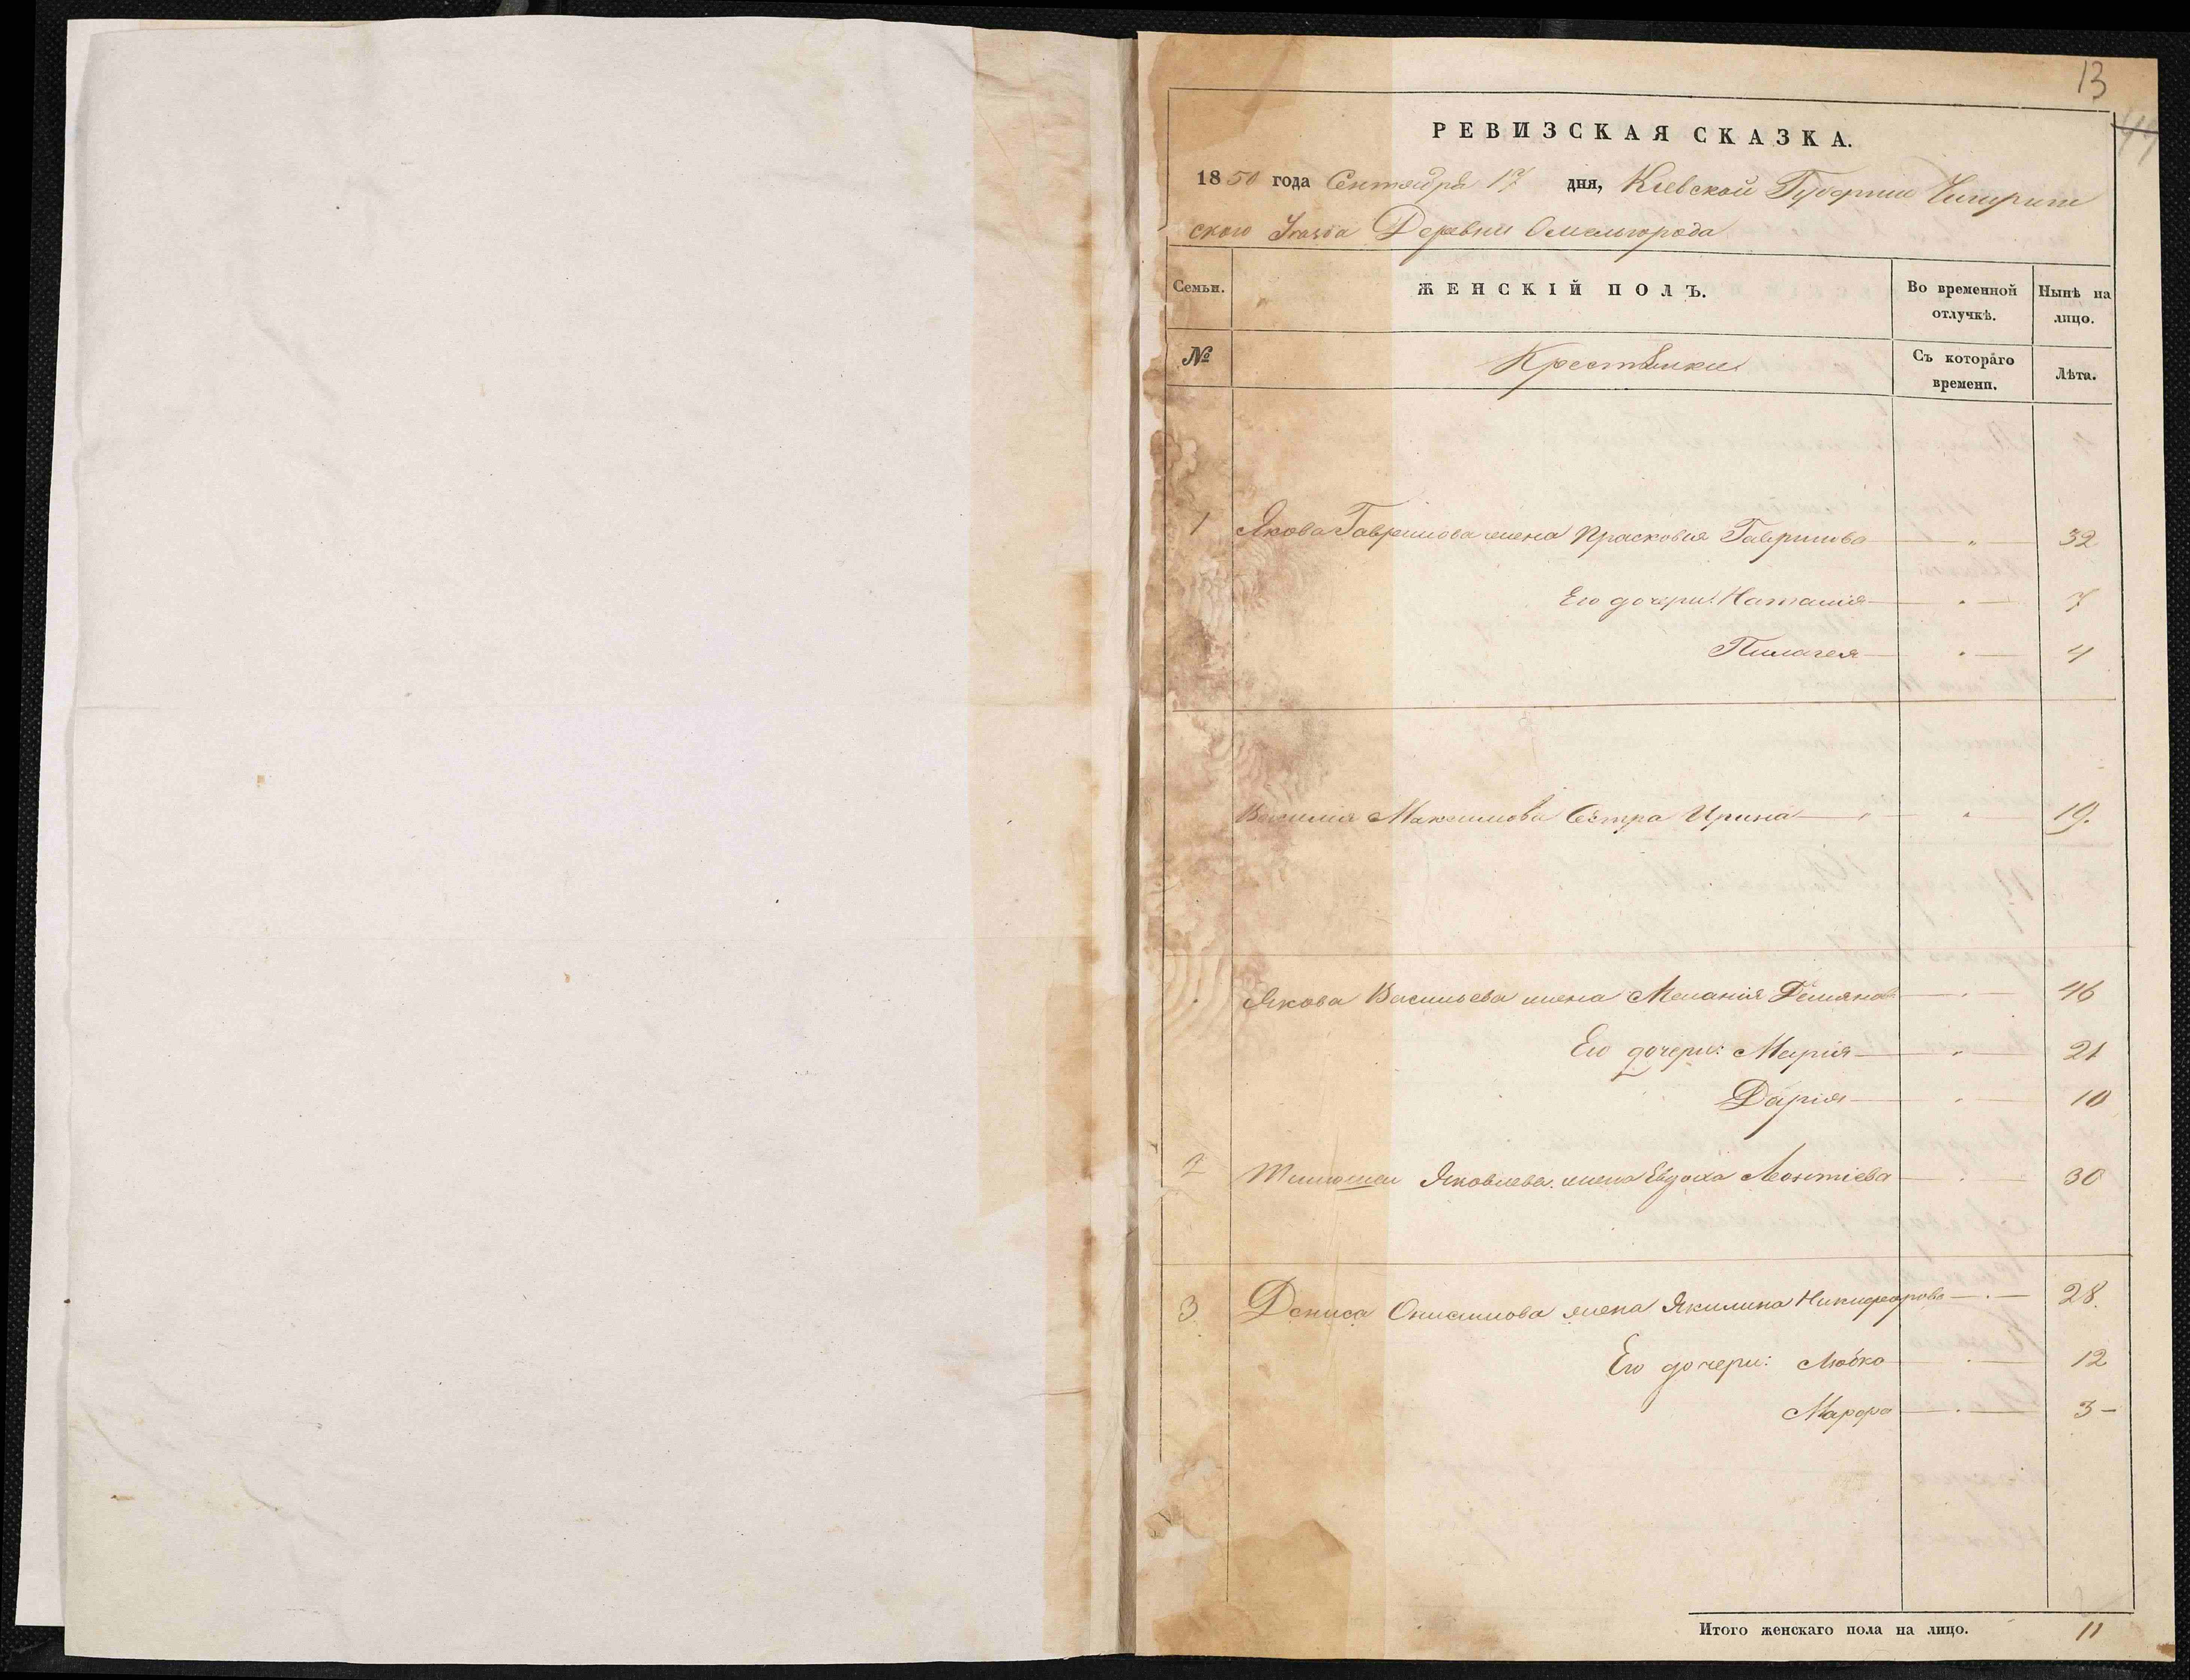 13
РЕВИЗСКАЯ СКАЗКА.
1850 года Сентября 17 дня, Кіевской Губерніи Чигирин
ского Уезда Деревни Омельгорода
Семьи. ЖЕНСКІЙ ПОЛЪ. Во временной отлучкѣ. Нынѣ на лицо.
№ Крестьянки Съ котораго времени. Лѣта.
1 Якова Гаврилова жена Прасковия Гаврилова — " — 32
Его дочери: Наталия — " — 7
Пилагея — " — 4
Василия Максимова Сестра Ирина — " — 19.
Якова Васильева жена Меланія Демянова — " — 46
Его дочери: Марія — " — 21
Дарія — " — 10
2 Яковлева жена Евдоха Леонтіева — " — 30
3 Дениса Онисимова жена Якилина Никифорова — " — 28.
Его дочери: Любка — " — 12
Марфа — " — 3 -
Итого женскаго пола на лицо. 11